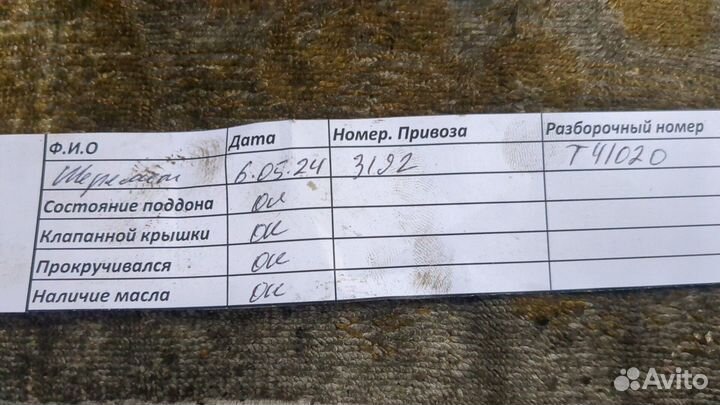 Ф.И.О Дата Номер. Привоза Разборочный номер
6.05.24 3192 Т41020
Состояние поддона ок
Клапанной крышки ок
Прокручивался ок
Наличие масла ок
Avito